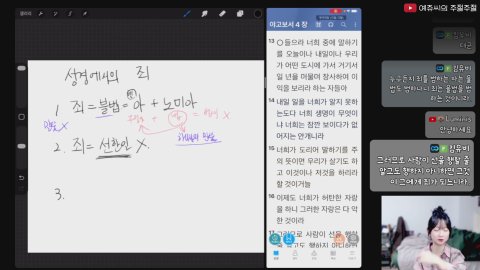 갤러리
성경에서의 죄
1. 죄 = 불법 = 아 + 노미아
2. 죄 = 선한일 X
3.
야고보서 4 장
13 ○들으라 너희 중에 말하기
를 오늘이나 내일이나 우리
가 어떤 도시에 가서 거기서
일 년을 머물며 장사하여 이
익을 보리라 하는 자들아
14 내일 일을 너희가 알지 못하
는도다 너희 생명이 무엇이
냐 너희는 잠깐 보이다가 없
어지는 안개니라
15 너희가 도리어 말하기를 주
의 뜻이면 우리가 살기도 하
고 이것이나 저것을 하리라
할 것이거늘
16 이제도 너희가 허탄한 자랑
을 하니 그러한 자랑은 다 악
한 것이라
17 그러므로 사람이 선을 행할
여쥬씨의 주절주절
김유비
누구든지 죄를 범하는 자는 불
법을 범하나니 죄는 불법을 범
하는 것이니라
Luminis
안녕하세요
김유비
그러므로 사람이 선을 행할 줄
알고도 행하지 아니하면 그것
이 그에게 죄가 되느니라.